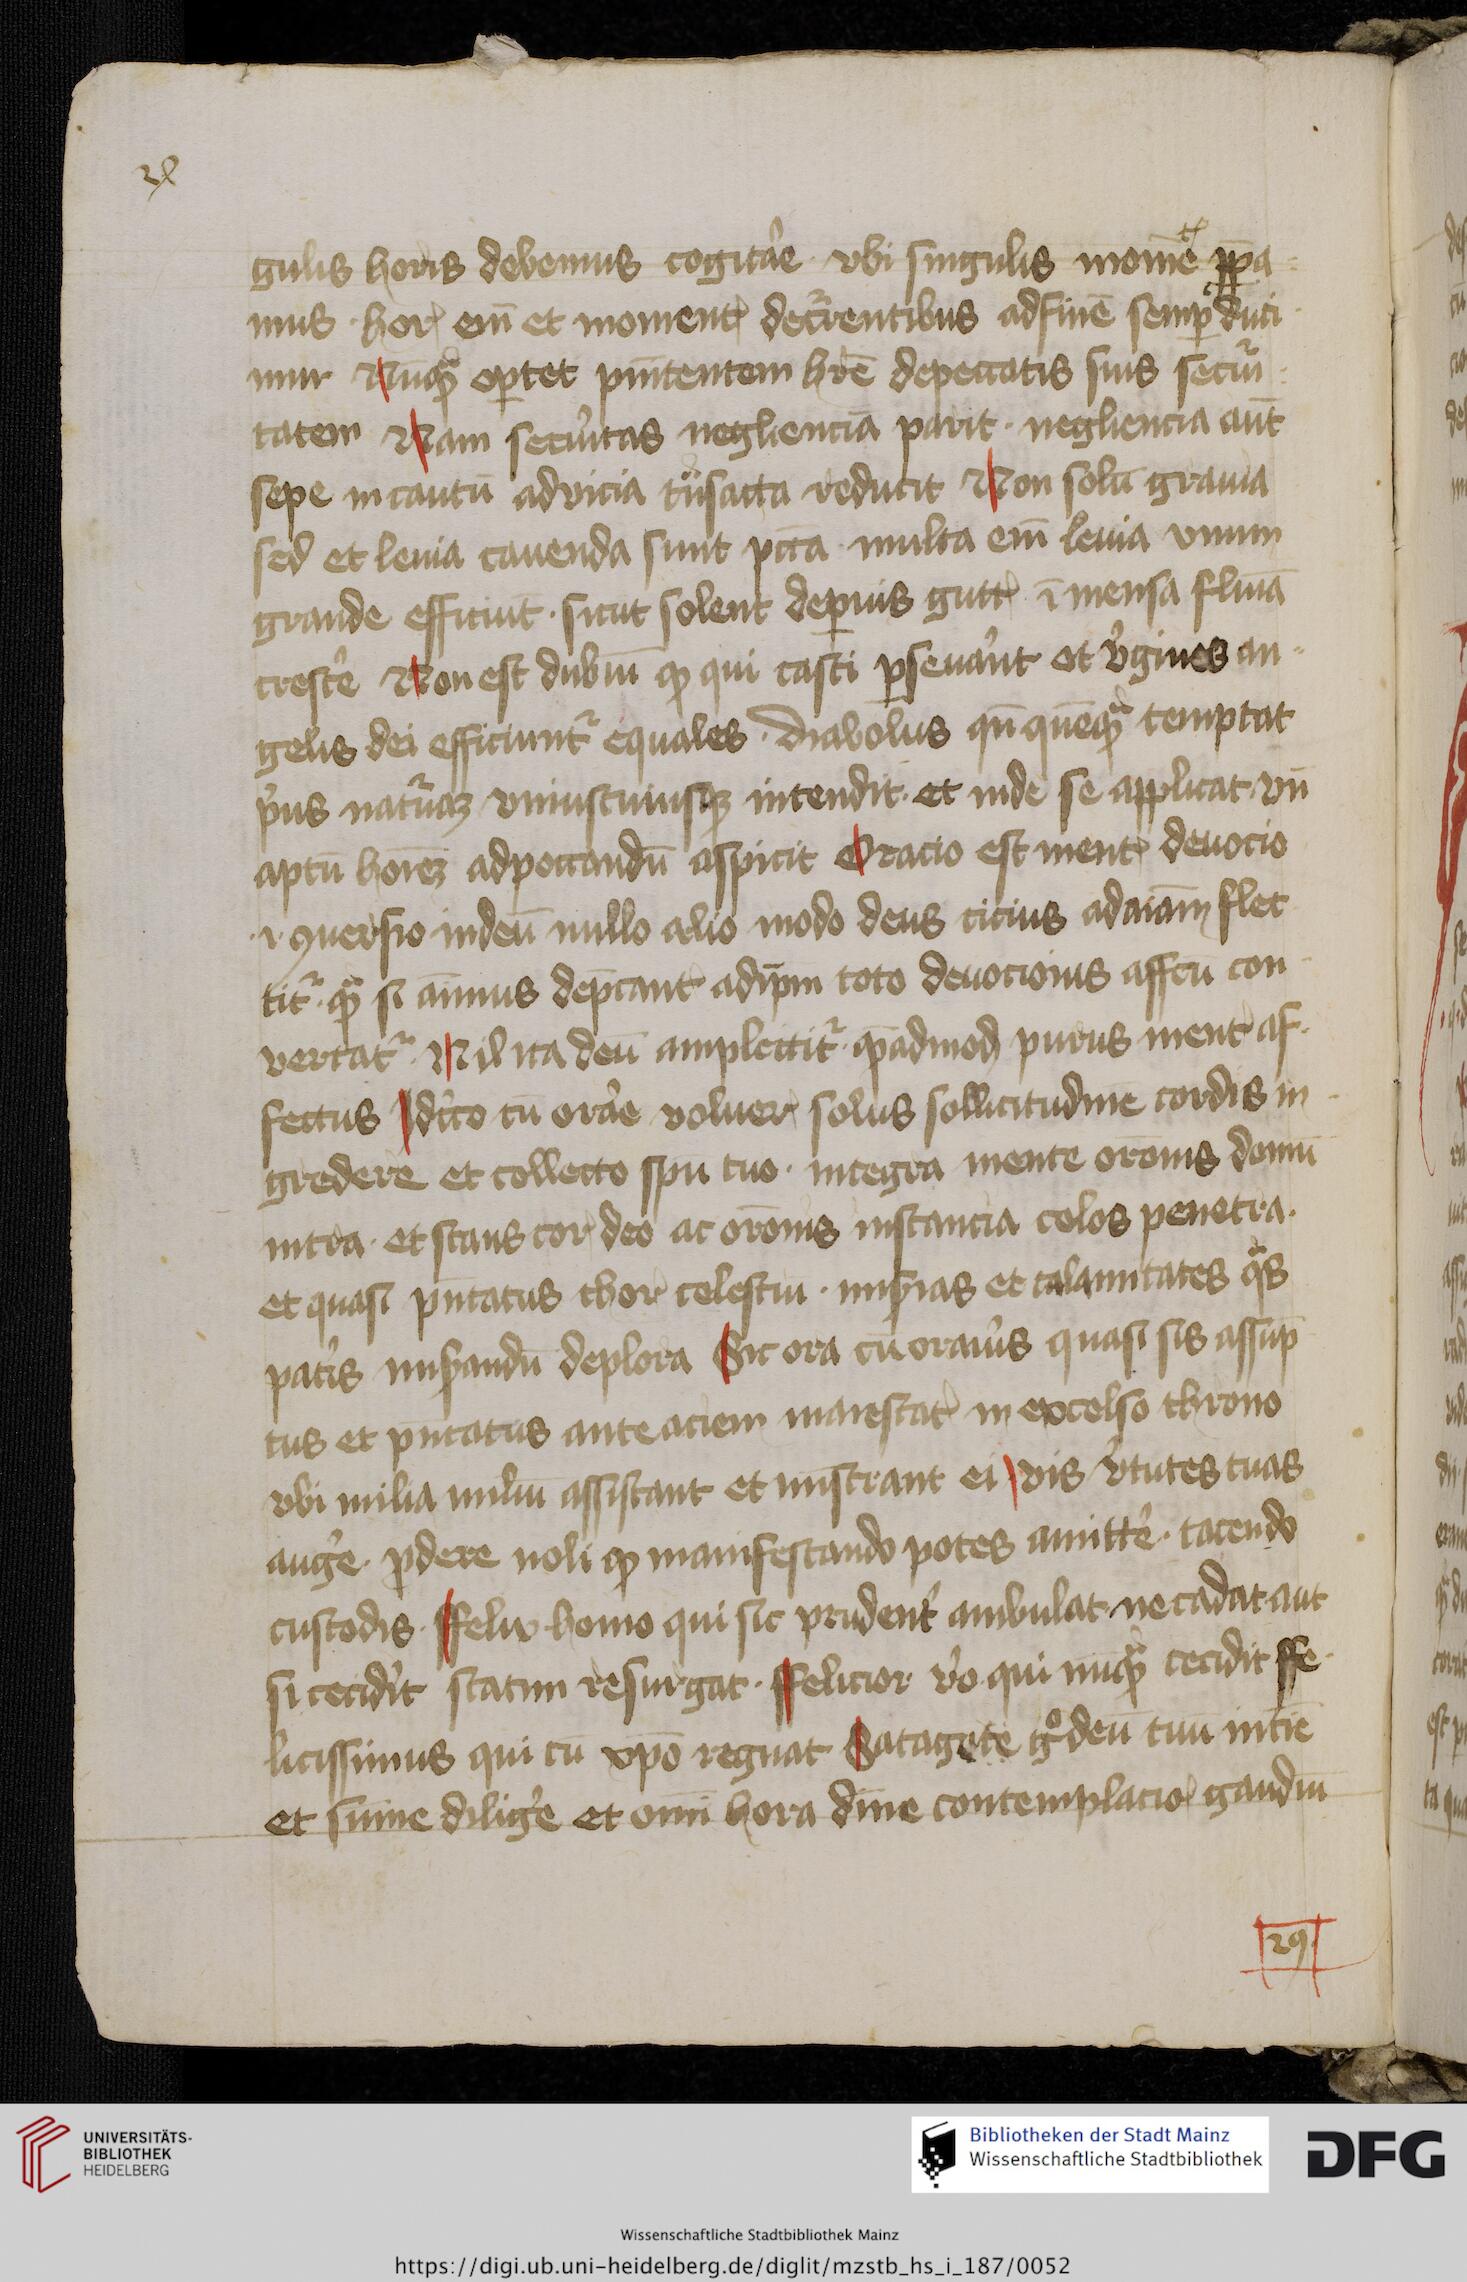 gulis horis debemus cogitare vbi singulis mome ppa
mus hor em et moment decrentibus ad fine semp duci
mur Nuq optet pnitentem hre de peccatis suis securi
tatem Nam securitas negliencia parit · negliencia aut
sepe incautu ad vicia tnsacta reducit Non solu grauia
sed et leuia cauenda sunt pcta multa em leuia vnum
grande efficiut · sicut solent de puis gutt i mensa fluia
cresce Non est dubiu q qui casti pseuant et vgines an
gelis dei efficiunt equales · Diabolus qn queq temptat
pus natura vniuscuiusq intendit · et inde se applicat vn
aptu hoiez ad peccandu aspicit Oracio est ment deuocio
i quersio in deu nullo alio modo deus cicius ad aiam flec
tit · q si aimus depcant ad ipm toto deuocionis affcu con
vertat · Nil ita deu amplectit · qadmod purus ment af
fectus Idcirco cu orare voluer solus sollicitudine cordis in
gredere et collecto spu tuo · integra mente oronis domu
intra · et stans cor deo ac oronis instancia celos penetra ·
et quasi pntatus chor celestiu · miserias et calamitates qs
patis miserandu deplora Sic ora cu oraueris quasi sis assup
tus et pntatus ante aciem maiestat in excelso throno
vbi milia miliu assistant et mistrant ei vis vtutes tuas
auge · pdere noli q manifestando potes amitte · tacendo
custodis · ffelix homo qui sic prudent ambulat ne cadat aut
si cecidit statim resurgat · ffelicior vo qui nuq cecidit ffe
licissimus qui cu xpo regnat Satagete g deu tuu intie
et sume dilige et omi hora diuine contemplacio gaudiu
29
UNIVERSITÄTS-
BIBLIOTHEK
HEIDELBERG
Bibliotheken der Stadt Mainz
Wissenschaftliche Stadtbibliothek
DFG
Wissenschaftliche Stadtbibliothek Mainz
https://digi.ub.uni-heidelberg.de/diglit/mzstb_hs_i_187/0052